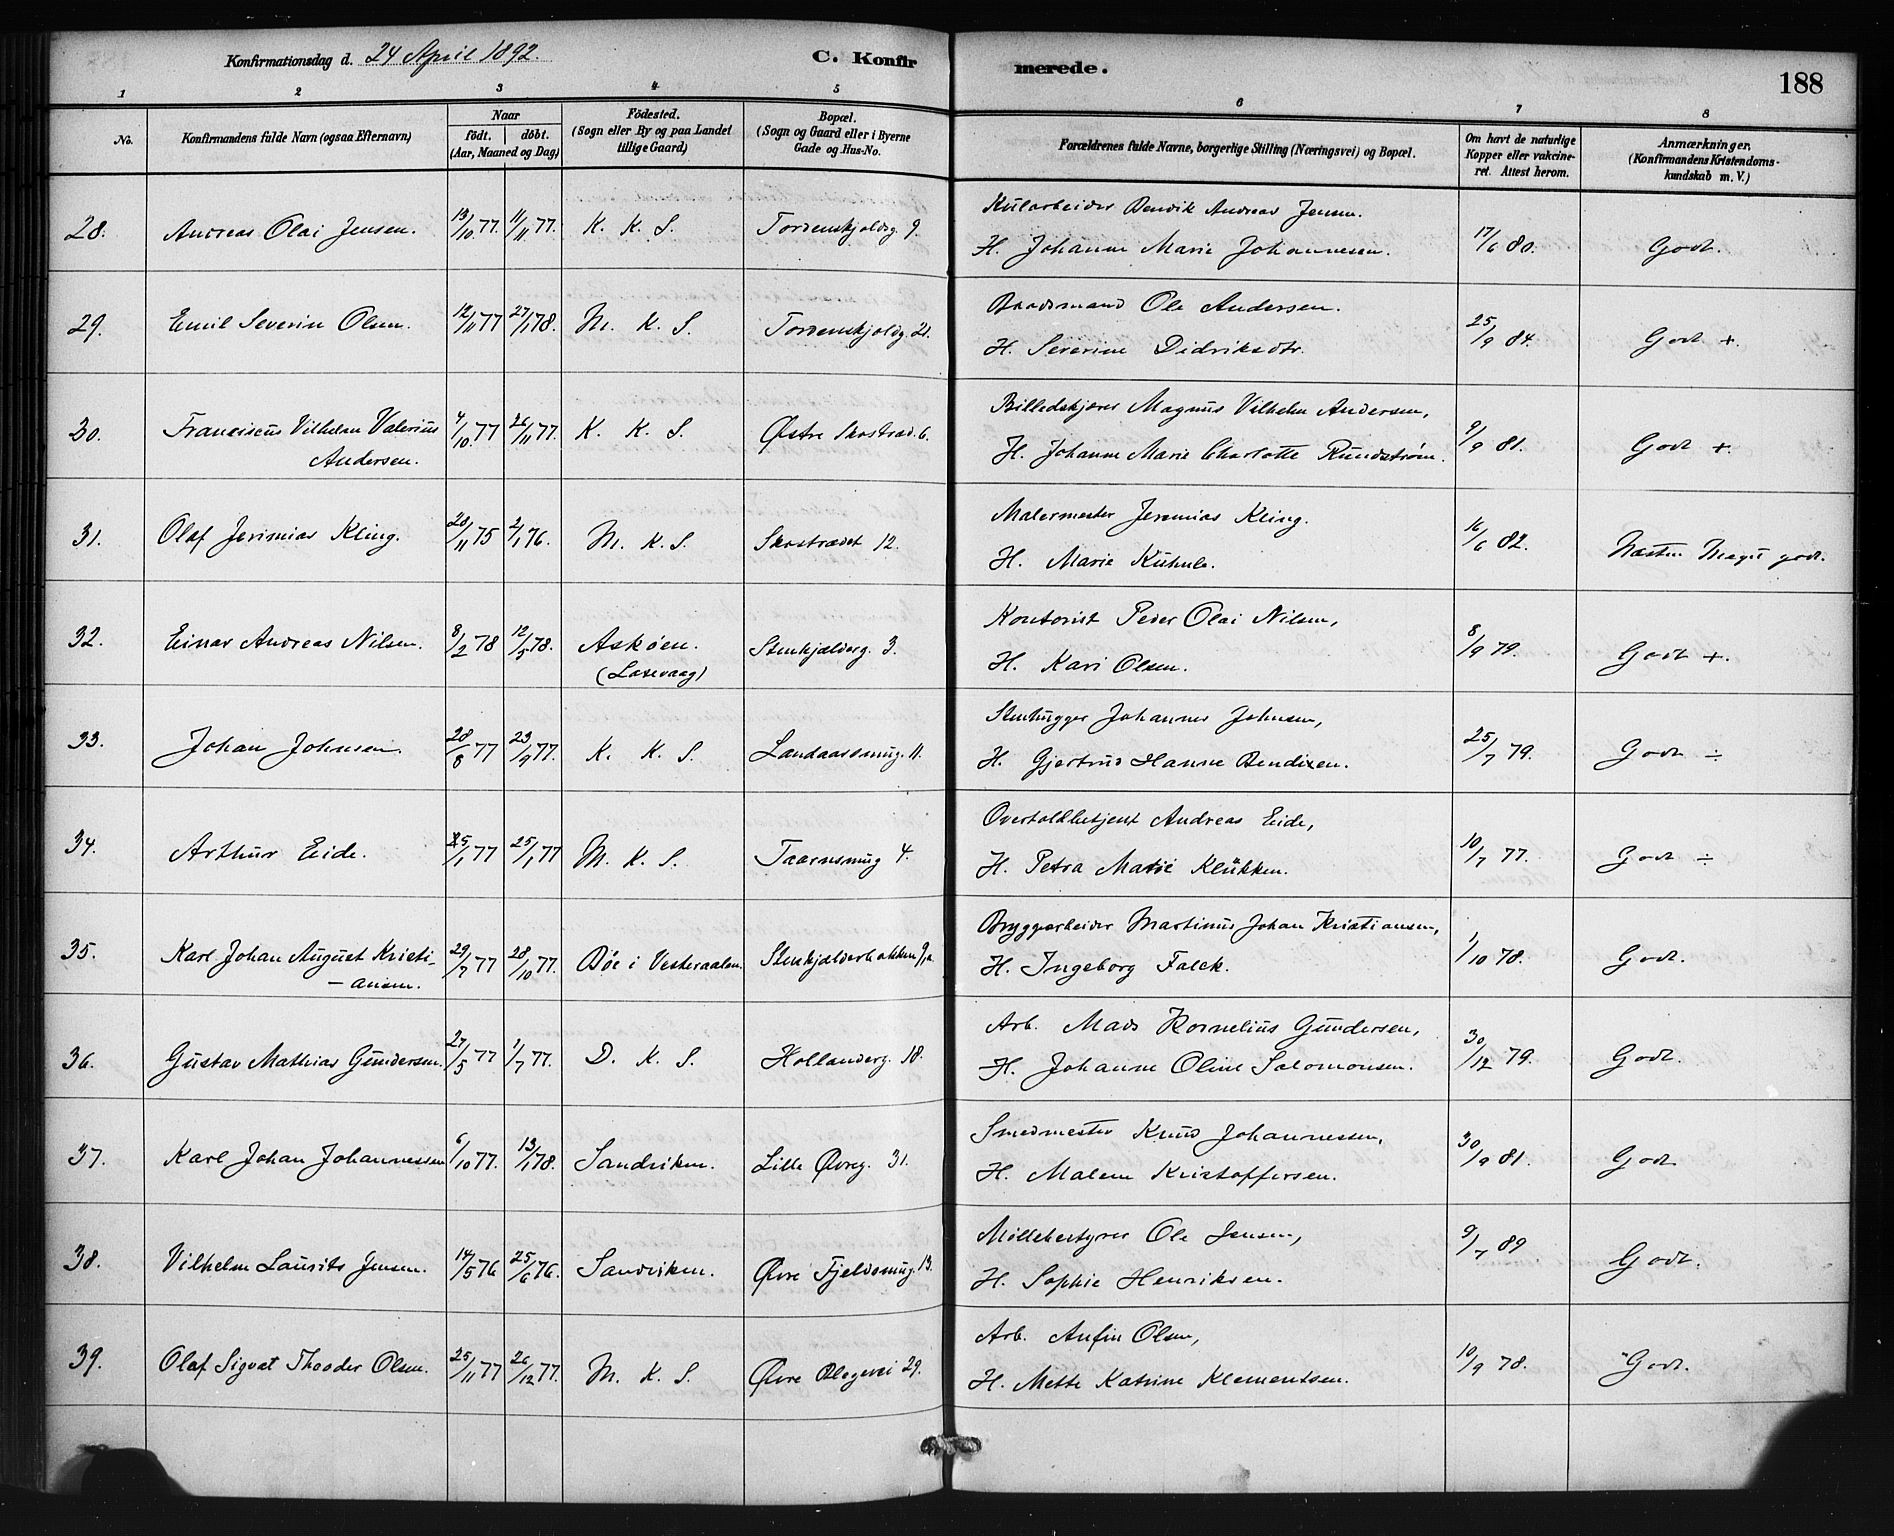 Konfirmationsdag d. 24 April 1892.
C. Konfirmerede.
188
1 2 3 4 5 6 7 8
No.
Konfirmandens fulde Navn (ogsaa Efternavn)
Naar
födt. döbt.
(Aar, Maaned og Dag)
Födested.
(Sogn eller By og paa Landet
tillige Gaard)
Bopæl.
(Sogn og Gaard eller i Byerne
Gade og Hus-No.
Forældrenes fulde Navne, borgerlige Stilling (Næringsvei) og Bopæl.
Om havt de naturlige
Kopper eller vakcine-
ret. Attest herom.
Anmærkninger,
(Konfirmandens Kristendoms-
kundskab m. V.)
28. Andreas Olai Jensen. 13/10 77. 11/11 77. K. K. S. Tordenskjoldsg. 9. Kularbeider Bendik Andreas Jensen.
H. Johanne Marie Johannesen. 17/6 80. Godt.
29. Emil Severin Olsen. 12/11 77 27/1 78. M. K. S. Tordenskjoldsg. 21. Baadsmand Ole Andersen.
H. Severine Didriksdtr. 25/9 84. Godt +.
30. Franciscus Vilhelm Valerius
Andersen. 4/10 77 26/11 77. K. K. S. Østre Skostræd. 6. Billedskjærer Magnus Vilhelm Andersen,
H. Johanne Marie Charlotte Rundström. 9/9 81. Godt +.
31. Olaf Jerimias Kling. 20/11 75 2/1 76. M. K. S. Skostrædet 12. Malermester Jeremias Kling.
H. Marie Kuhnle. 16/6 82. Næsten Meget godt.
32. Einar Andreas Nilsen. 8/2 78 12/5 78. Askøen.
(Laxevaag) Stenkjælderg. 3. Kontorist Peder Olai Nilsen,
H. Kari Olsen. 8/9 79. Godt +.
33. Johan Johnsen. 28/8 77 23/9 77. K. K. S. Landaassmug. 11. Stenhugger Johannes Johnsen,
H. Gjertrud Hanne Bendixen. 25/7 79. Godt ÷
34. Arthur Eide. 25/1 77 M. K. S. Taarnsmug 4. Overtoldbetjent Andreas Eide,
H. Petra Marie Klükken. 10/7 77. Godt ÷
35. Karl Johan August Kristi-
-ansen. 29/7 77 28/10 77. Bøe i Vesteraalen. Stenkjælderbakken 9, Bryggearbeider Martinus Johan Kristiansen,
H. Ingeborg Falck. 1/10 78. Godt.
36. Gustav Mathias Gundersen. 27/5 77 1/7 77. D. K. S. Hollanderg. 18. Arb. Mads Kornelius Gundersen,
H. Johanne Oline Salomonsen. 30/12 79. Godt.
37. Karl Johan Johannessen 6/10 77. 13/1 78. Sandviken. Lille Øvreg. 31. Smedmester Knud Johannessen,
H. Malene Kristoffersen. 30/9 81. Godt
38. Vilhelm Laurits Jensen. 14/5 76 25/6 76. Sandviken. Øvre Fjeldsmug. 13. Møllebestyrer Ole Jensen,
H. Sophie Henriksen. 9/7 89 Godt.
39. Olaf Sigvat Thoodor Olsen. 25/11 77 26/12 77. M. K. S. Øvre Blegevei 29. Arb. Anfin Olsen,
H. Mette Katrine Klementsen. 10/9 78. Godt.